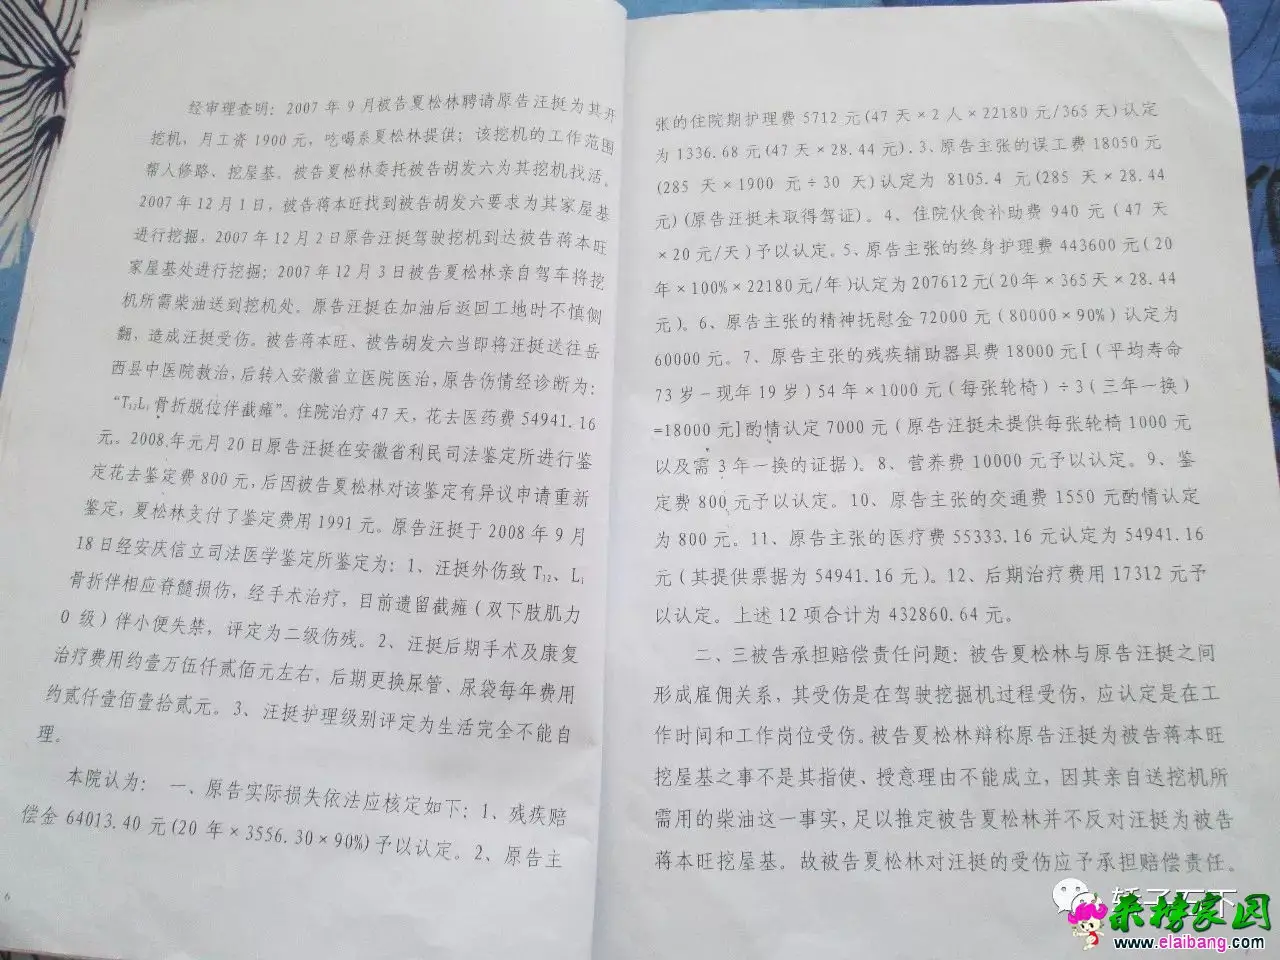 经审理查明：2007 年 9 月被告夏松林聘请原告汪挺为其开
挖机，月工资 1900 元，吃喝系夏松林提供；该挖机的工作范围
帮人修路、挖屋基。被告夏松林委托被告胡发六为其挖机找活。
2007 年 12 月 1 日，被告蒋本旺找到被告胡发六要求为其家屋基
进行挖掘，2007 年 12 月 2 日原告汪挺驾驶挖机到达被告蒋本旺
家屋基处进行挖掘；2007 年 12 月 3 日被告夏松林亲自驾车将挖
机所需柴油送到挖机处。原告汪挺在加油后返回工地时不慎侧
翻，造成汪挺受伤。被告蒋本旺、被告胡发六当即将汪挺送往岳
西县中医院救治，后转入安徽省立医院医治，原告伤情经诊断为：
“T₁₂L₁骨折脱位伴截瘫”。住院治疗 47 天，花去医药费 54941.16
元。2008 年元月 20 日原告汪挺在安徽省利民司法鉴定所进行鉴
定花去鉴定费 800 元，后因被告夏松林对该鉴定有异议申请重新
鉴定，夏松林支付了鉴定费用 1991 元。原告汪挺于 2008 年 9 月
18 日经安庆信立司法医学鉴定所鉴定为：1、汪挺外伤致 T₁₂、L₁
骨折伴相应脊髓损伤，经手术治疗，目前遗留截瘫（双下肢肌力
0 级）伴小便失禁，评定为二级伤残。2、汪挺后期手术及康复
治疗费用约壹万伍仟贰佰元左右，后期更换尿管、尿袋每年费用
约贰仟壹佰壹拾贰元。3、汪挺护理级别评定为生活完全不能自
理。
本院认为： 一、原告实际损失依法应核定如下：1、残疾赔
偿金 64013.40 元(20 年×3556.30×90%)予以认定。2、原告主
6
张的住院期护理费 5712 元(47 天×2 人×22180 元/365 天)认定
为 1336.68 元(47 天×28.44 元).3、原告主张的误工费 18050 元
(285 天×1900 元÷30 天)认定为 8105.4 元(285 天×28.44
元)(原告汪挺未取得驾证)。4、住院伙食补助费 940 元（47 天
×20 元/天）予以认定。5、原告主张的终身护理费 443600 元（20
年×100%×22180 元/年）认定为 207612 元（20 年×365 天×28.44
元）。6、原告主张的精神抚慰金 72000 元（80000×90%）认定为
60000 元。7、原告主张的残疾辅助器具费 18000 元[（平均寿命
73 岁－现年 19 岁）54 年×1000 元（每张轮椅）÷3（三年一换）
=18000 元]酌情认定 7000 元（原告汪挺未提供每张轮椅 1000 元
以及需 3 年一换的证据）。8、营养费 10000 元予以认定。9、鉴
定费 800 元予以认定。10、原告主张的交通费 1550 元酌情认定
为 800 元。11、原告主张的医疗费 55333.16 元认定为 54941.16
元（其提供票据为 54941.16 元）。12、后期治疗费用 17312 元予
以认定。上述 12 项合计为 432860.64 元。
二、三被告承担赔偿责任问题：被告夏松林与原告汪挺之间
形成雇佣关系，其受伤是在驾驶挖掘机过程受伤，应认定是在工
作时间和工作岗位受伤。被告夏松林辩称原告汪挺为被告蒋本旺
挖屋基之事不是其指使、授意理由不能成立，因其亲自送挖机所
需用的柴油这一事实，足以推定被告夏松林并不反对汪挺为被告
蒋本旺挖屋基。故被告夏松林对汪挺的受伤应予承担赔偿责任。
www.elaibang.com